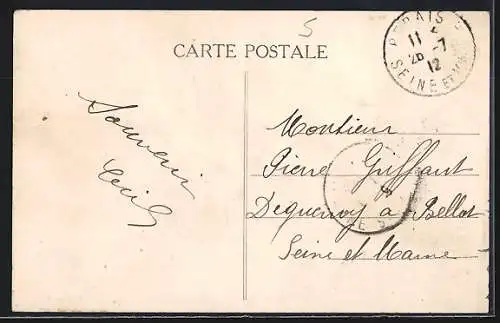 5
CARTE POSTALE
11
26 -7
12
SEINE ET
Souvenir
Monsieur
Pierre Griffaut
à Bellot
Seine et Marne